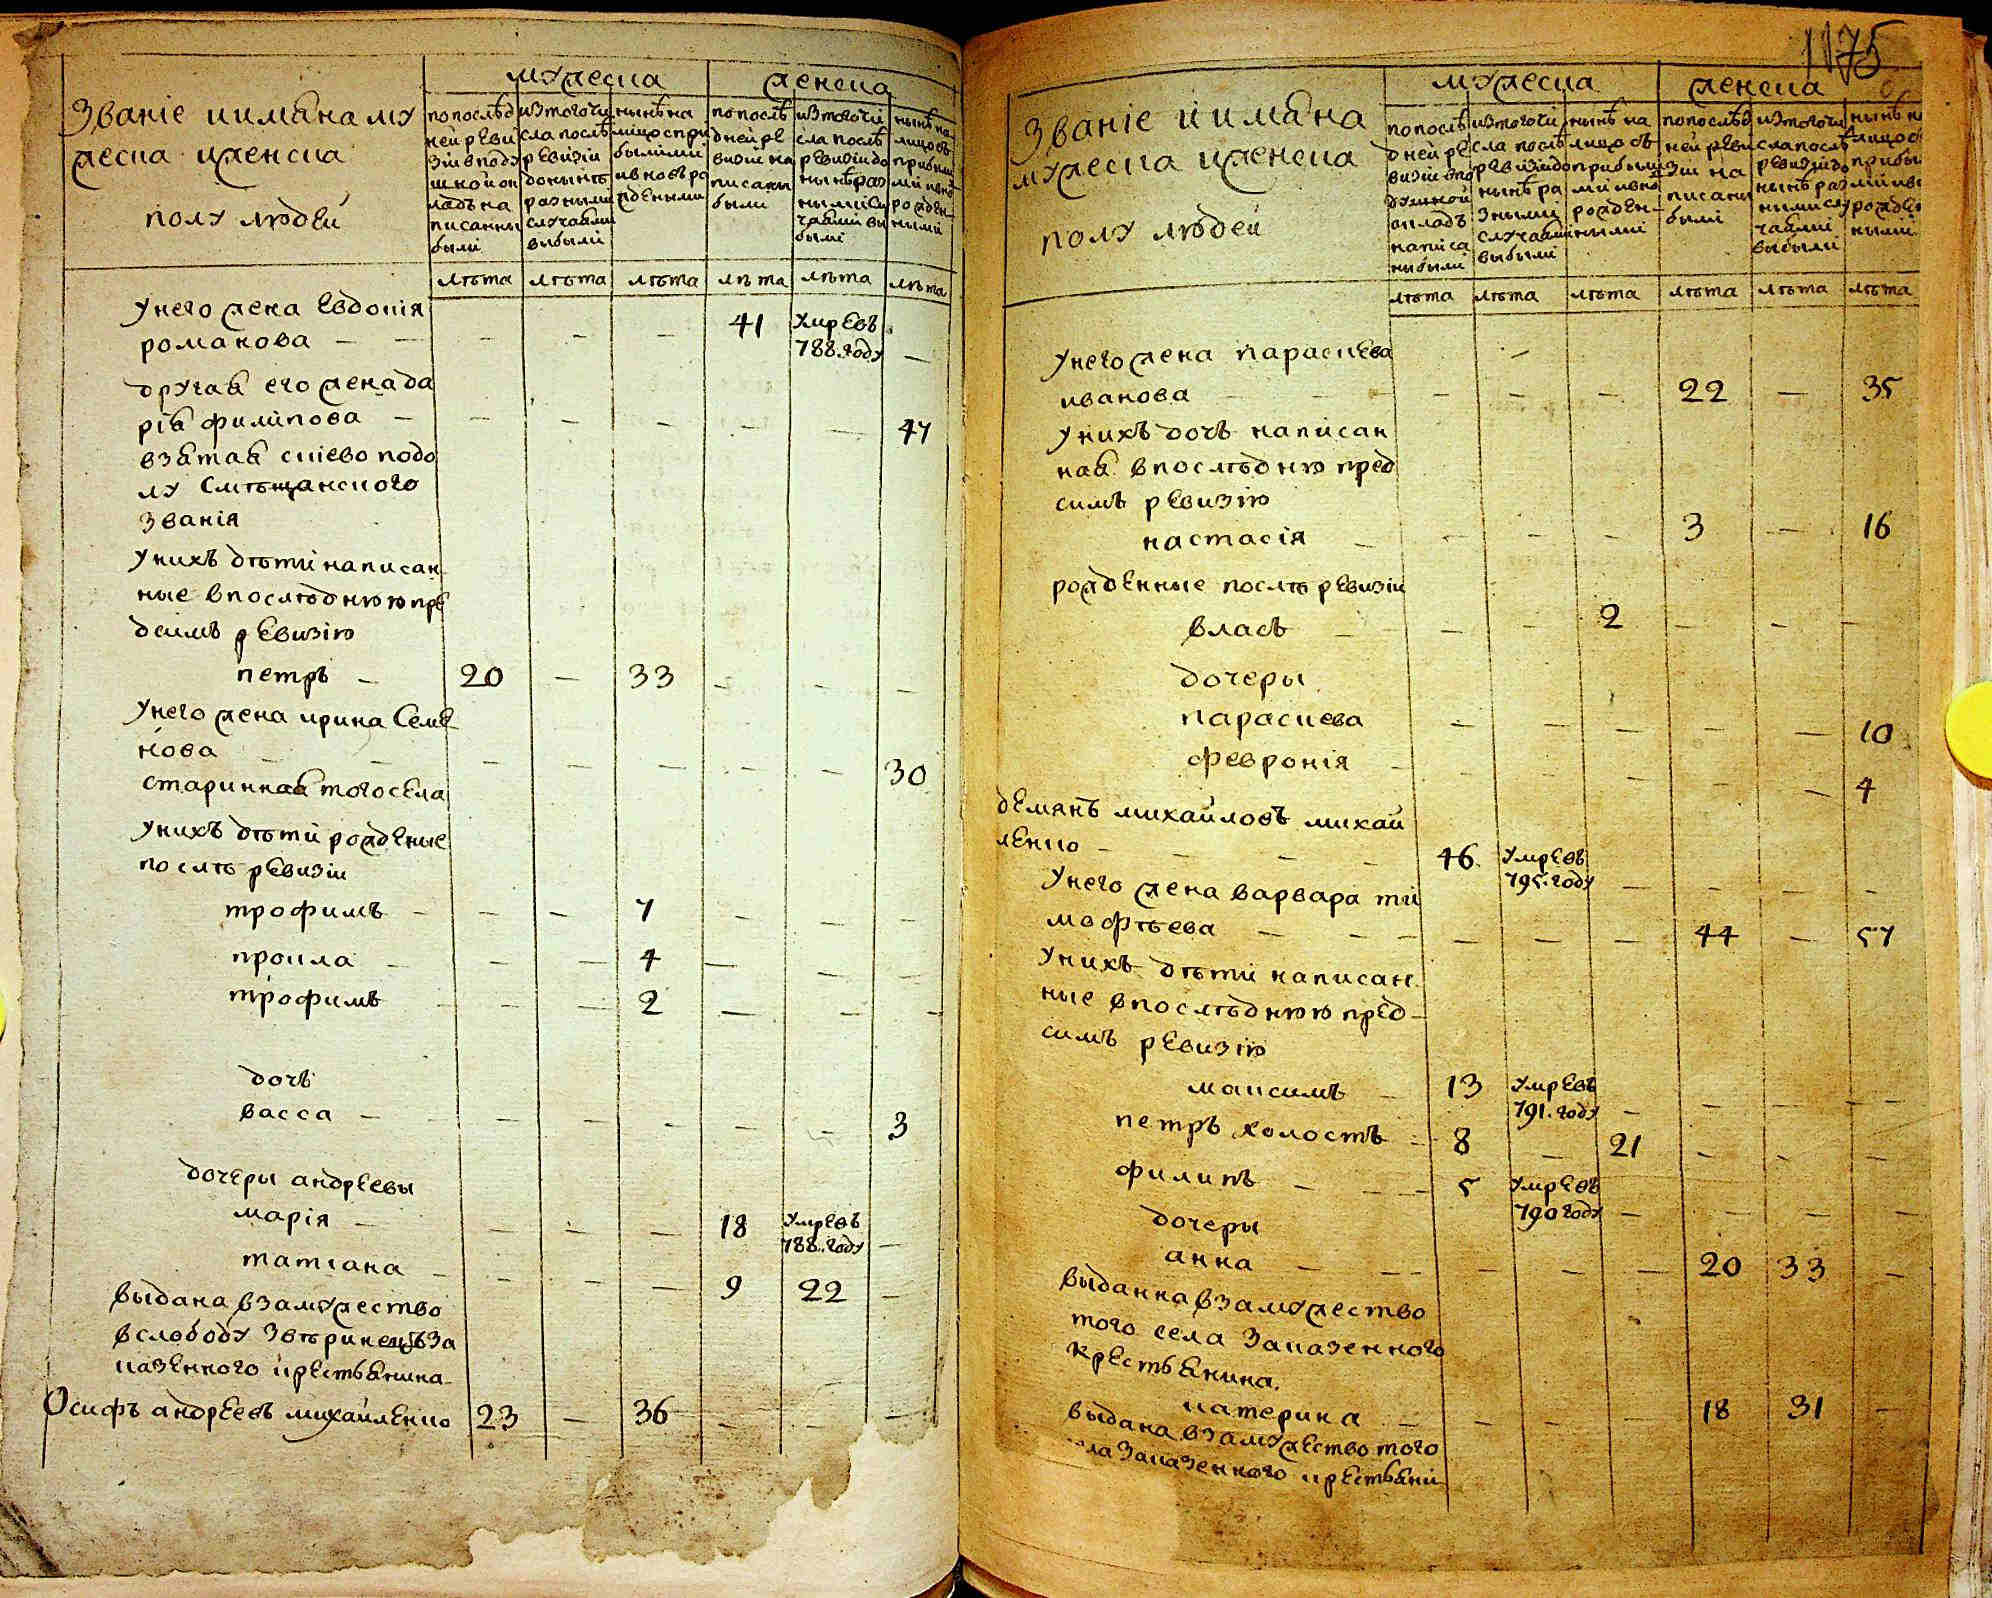 мужеска женска
Званїе и имѧна му
жеска и женска
полу людей
по послѣд
ней реви
зіи в поду
шной ок
ладъ на
писанны
были
из того чи
сла послѣ
ревизіи
до нынѣ
разными
случаѧми
выбыли
нынѣ на
лицо с при
былими
и вновь ро
ждеными
по послѣ
дней ре
визіи на
писаны
были
из того чи
сла послѣ
ревизіи до
нынѣ раз
ными слу
чаѧми вы
были
нынѣ на
лицо съ
прибыли
ми и вно
рожден
ными
лѣта лѣта лѣта лѣта лѣта лѣта
У него жена Евдокія
романова — — — — — 41 умре въ 788. году —
другаѧ его жена да
рїѧ филипова — — — — — — 47
взѧтаѧ с кіево подо
лу с мѣщанского
званія
У нихъ дѣти написан
ные в последнюю пре
д симъ ревизію
петръ — 20 — 33 — — —
У него жена ирина Семе
нова — — — — — — — 30
стариннаѧ того села
У нихъ дѣти рожденые
послѣ ревизіи
трофимъ — — — 7 — — —
прокла — — — 4 — — —
трофимъ — — — 2 — — —
дочь
васса — — — — — — 3
дочеры андреевы
марія — — — — 18 умре въ 788. году —
татіана — — — — 9 22 —
выдана в замужество
в слободу Звѣринецъ за
казенного крестьѧнина
Осифъ андреевъ михайленко 23 — 36 — —
1175
мужеска женска
Званіе и имѧна
мужеска и женска
полу людей
по послѣ
дней ре
визіи в по
душной
окладъ
написа
ны были
из того чи
сла послѣ
ревизіи до
нынѣ ра
зными
случаѧми
выбыли
нынѣ на
лицо съ
прибыли
ми и вно
рожден
ными
по послѣд
ней реви
зіи на
писаны
были
из того чи
сла послѣ
ревизіи до
нынѣ раз
ными слу
чаѧми
выбыли
нынѣ на
лицо съ
прибы
ми и вно
рожде
ными
лѣта лѣта лѣта лѣта лѣта лѣта
У него жена параскева
иванова — — — 22 — 35
У нихъ дочь написан
наѧ в послѣдню пред
симъ ревизію
настасія — — — — 3 — 16
рожденные послѣ ревизіи
власъ — — — 2 — — —
дочеры
параскева — — — — — 10
февронія — — — — — — 4
демянъ михайловъ михай
ленко — — — — 46. умре въ 795. году — — — —
У него жена варвара ти
мофѣева — — — — — — 44 — 57
У нихъ дѣти написан
ные в послѣднюю пред
симъ ревизію
максимъ — 13 умре въ 791. году — — — —
петръ холостъ — 8 — 21 — — —
филипъ — — — 5 умре въ 790 году — — — —
дочеры
анна — — — — — — 20 33 —
выданна в замужество
того села за казенного
крестьѧнина.
катерина — — — — 18 31 —
выдана в замужество того
ла за казенного крестьѧни